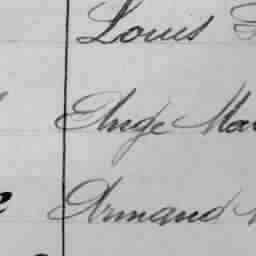 Louis
Ange Ma
Armand